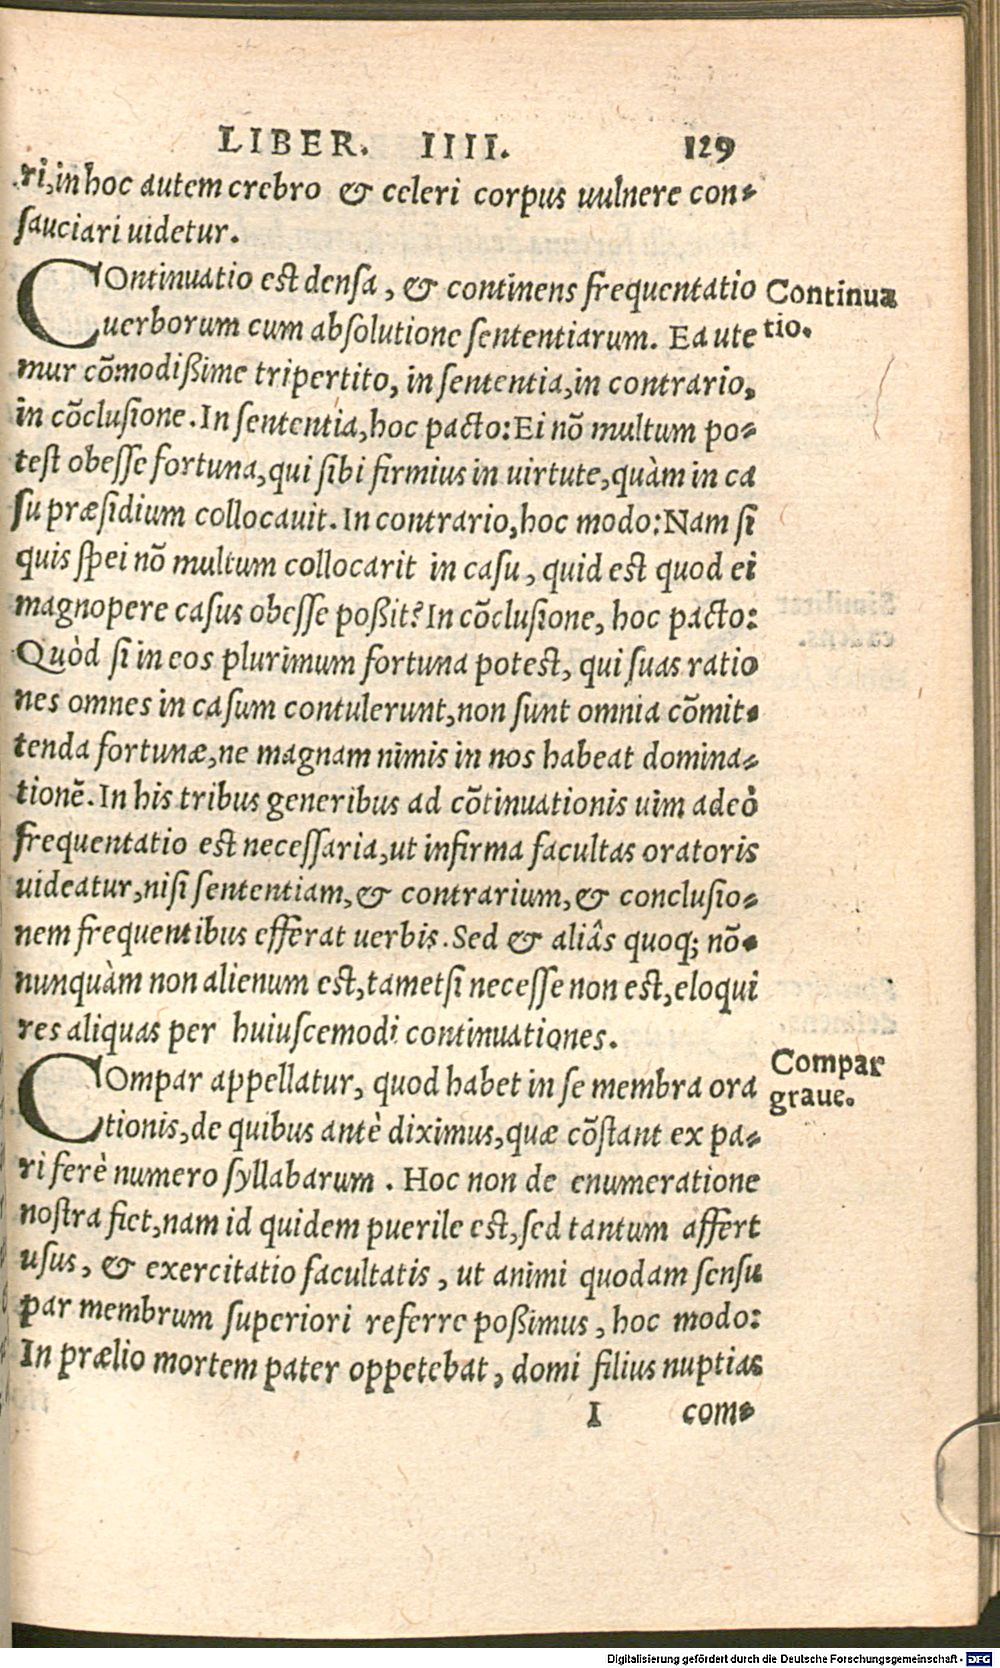 LIBER. IIII. 129
ri, in hoc autem crebro & celeri corpus uulnere con-
sauciari uidetur.
COntinuatio est densa, & continens frequentatio
uerborum cum absolutione sententiarum. Ea ute
Continua
tio.
mur cõmodißime tripertito, in sententia, in contrario,
in cõclusione. In sententia, hoc pacto: Ei nõ multum po-
test obesse fortuna, qui sibi firmius in uirtute, quàm in ca
su præsidium collocauit. In contrario, hoc modo: Nam si
quis spei nõ multum collocarit in casu, quid est quod ei
magnopere casus obesse poßit? In cõclusione, hoc pacto:
Quòd si in eos plurimum fortuna potest, qui suas ratio
nes omnes in casum contulerunt, non sunt omnia cõmit-
tenda fortunæ, ne magnam nimis in nos habeat domina-
tionẽ. In his tribus generibus ad cõtinuationis uim adeò
frequentatio est necessaria, ut infirma facultas oratoris
uideatur, nisi sententiam, & contrarium, & conclusio-
nem frequentibus efferat uerbis. Sed & aliâs quoq; nõ-
nunquàm non alienum est, tametsi necesse non est, eloqui
res aliquas per huiuscemodi continuationes.
COmpar appellatur, quod habet in se membra ora
tionis, de quibus antè diximus, quæ cõstant ex pa-
Compar
graue.
ri ferè numero syllabarum. Hoc non de enumeratione
nostra fiet, nam id quidem puerile est, sed tantum affert
usus, & exercitatio facultatis, ut animi quodam sensu
par membrum superiori referre poßimus, hoc modo:
In prælio mortem pater oppetebat, domi filius nuptias
I com-
Digitalisierung gefördert durch die Deutsche Forschungsgemeinschaft - DFG